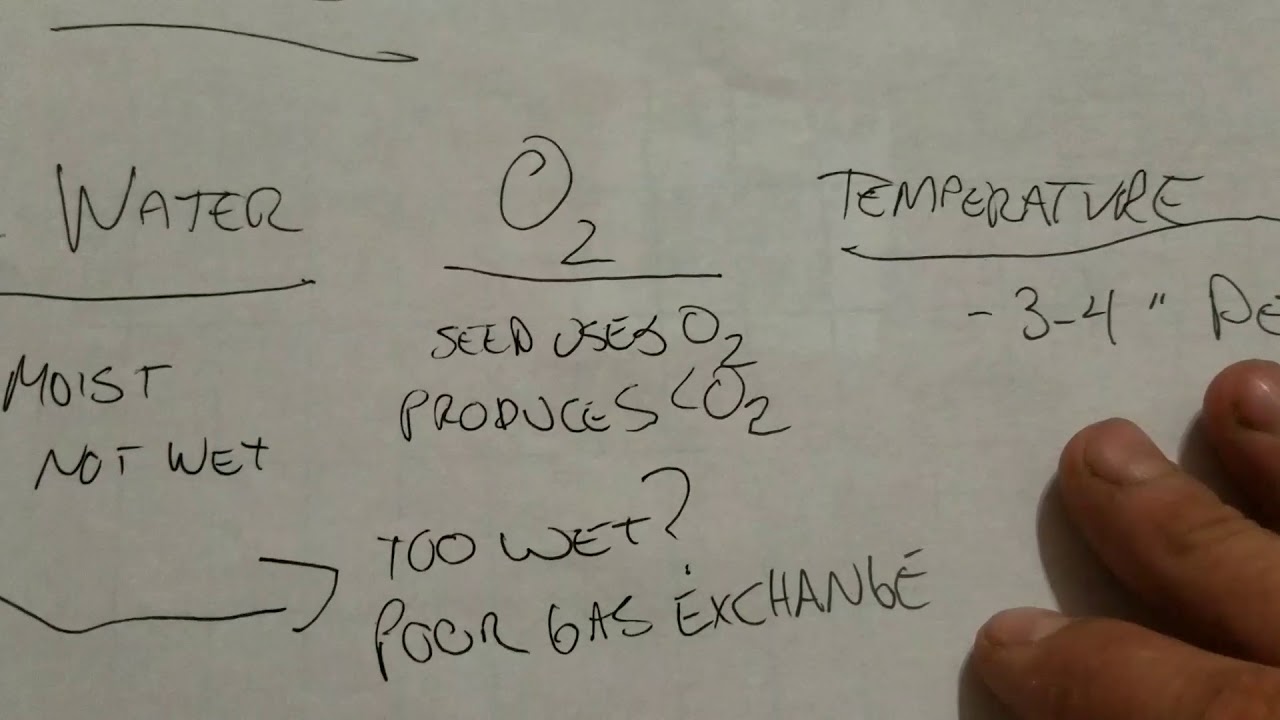 WATER
MOIST
NOT WET
O₂
SEED USES O₂
PRODUCES CO₂
TOO WET?
POOR GAS EXCHANGE
TEMPERATURE
- 3-4"